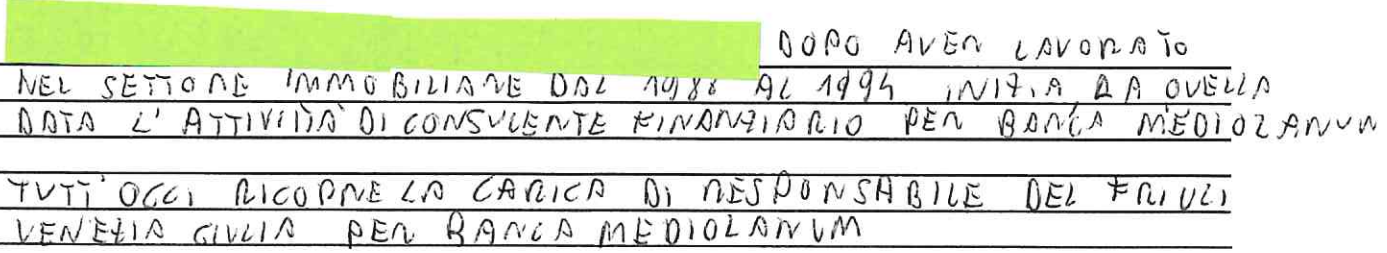 DOPO AVER LAVORATO
NEL SETTORE IMMOBILIARE DAL 1988 AL 1994 INIZIA DA QUELLA
DATA L'ATTIVITÀ DI CONSULENTE FINANZIARIO PER BANCA MEDIOLANUM
TUTT'OGGI RICOPRE LA CARICA DI RESPONSABILE DEL FRIULI
VENEZIA GIULIA PER BANCA MEDIOLANUM